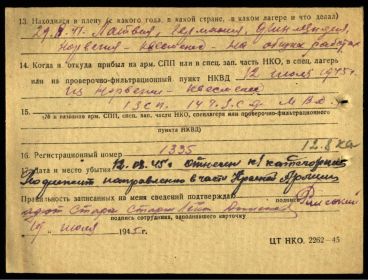 13. Находился в плену (с какого года, в какой стране, в каком лагере и что делал)
29.8.41. Латвия, Германия, Финляндия,
Норвегия - на общих работах
14. Когда и откуда прибыл на арм. СПП или в спец. зап. часть НКО, в спец. лагерь
или на проверочно-фильтрационный пункт НКВД 12 июля 1945 г.
из Норвегии -
15. 1 з с п. 147. з. с. д.
(№ и название арм. СПП, спец. зап. части НКО, спецлагеря или проверочно-фильтрационного
пункта НКВД)
16. Регистрационный номер 1335
Дата и место убытия 12.08.45 г. отнесен к 1 категории
Подлежит направлению в часть Красной Армии
Правильность записанных на меня сведений подтверждаю
подпись
лейт
подпись сотрудника, заполнявшего карточку
19 „ июля 1945 г.
ЦТ НКО. 2262-45